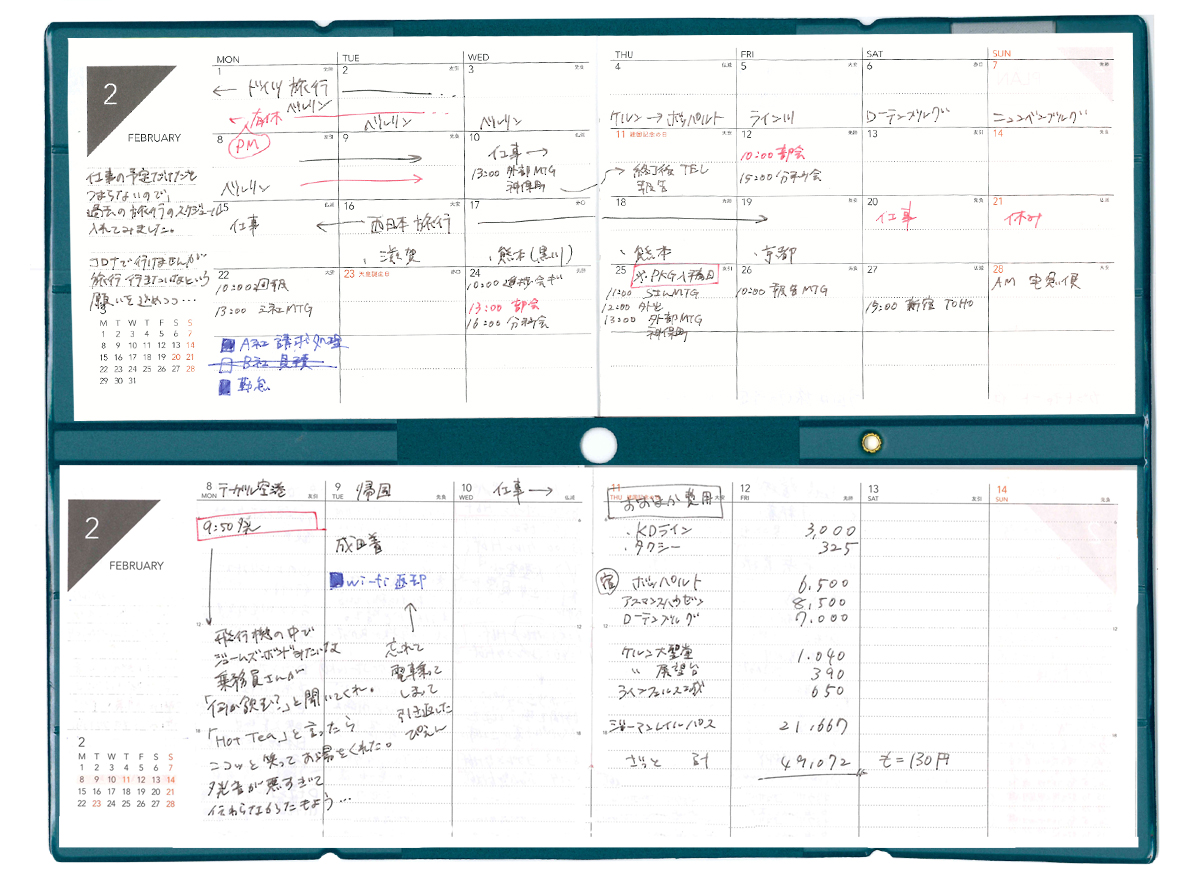 2
FEBRUARY
仕事の予定だけだと
つまらないので、
過去の旅行のスケジュール
入れてみました。
コロナで行けませんが
旅行行きたいなという
願いを込めつつ…
3
M T W T F S S
1 2 3 4 5 6 7
8 9 10 11 12 13 14
15 16 17 18 19 20 21
22 23 24 25 26 27 28
29 30 31
MON TUE WED THU FRI SAT SUN
1 2 3 4 5 6 7
← ドイツ旅行
ベルリン
ベルリン
ベルリン
ケルン→ボッパルト
ライン川
ローテンブルグ
ニュルンベルグ
8 9 10 11 建国記念の日 12 13 14
有休
PM
ベルリン
仕事→
13:00 外部MTG
神保町
終了後 TEL
報告
10:00 部会
15:00 分科会
15 16 17 18 19 20 21
仕事
← 西日本旅行
・滋賀
・熊本(黒川)
・熊本
・京都
仕事
休み
22 23 天皇誕生日 24 25 26 27 28
10:00 回報
13:00 三社MTG
A社 請求処理
B社 見積
勤怠
13:00 部会
16:00 分科会
※PKG入稿日
12:00 外出
13:00 外部MTG
神保町
10:00 報告MTG
15:00 新宿 TOHO
AM 宅急便
2
FEBRUARY
2
M T W T F S S
1 2 3 4 5 6 7
8 9 10 11 12 13 14
15 16 17 18 19 20 21
22 23 24 25 26 27 28
8 MON テーゲル空港
9:50発
飛行機の中で
ジェームズボンドみたいな
乗務員さんが
「何か飲む?」と聞いてくれ。
「HOT TEA」と言ったら
ニコッと笑ってお湯をくれた。
発音が悪すぎて
伝わらなかったもよう…
9 TUE 帰国
成田着
wi-fi 返却
↑
忘れて
電車乗って
しまって
引き返した
ぴえん
10 WED 仕事→
11 THU
おおまか費用
12 FRI
13 SAT
14 SUN
・KDライン 3,000
・タクシー 325
宿 ボッパルト 6,500
アスマンスハウゼン 8,500
ローテンブルグ 7,000
ケルン大聖堂 1,040
〃 展望台 390
ラインフェルス城 650
ジャーマンレイルパス 21,667
ざっと 計 49,072 €=130円